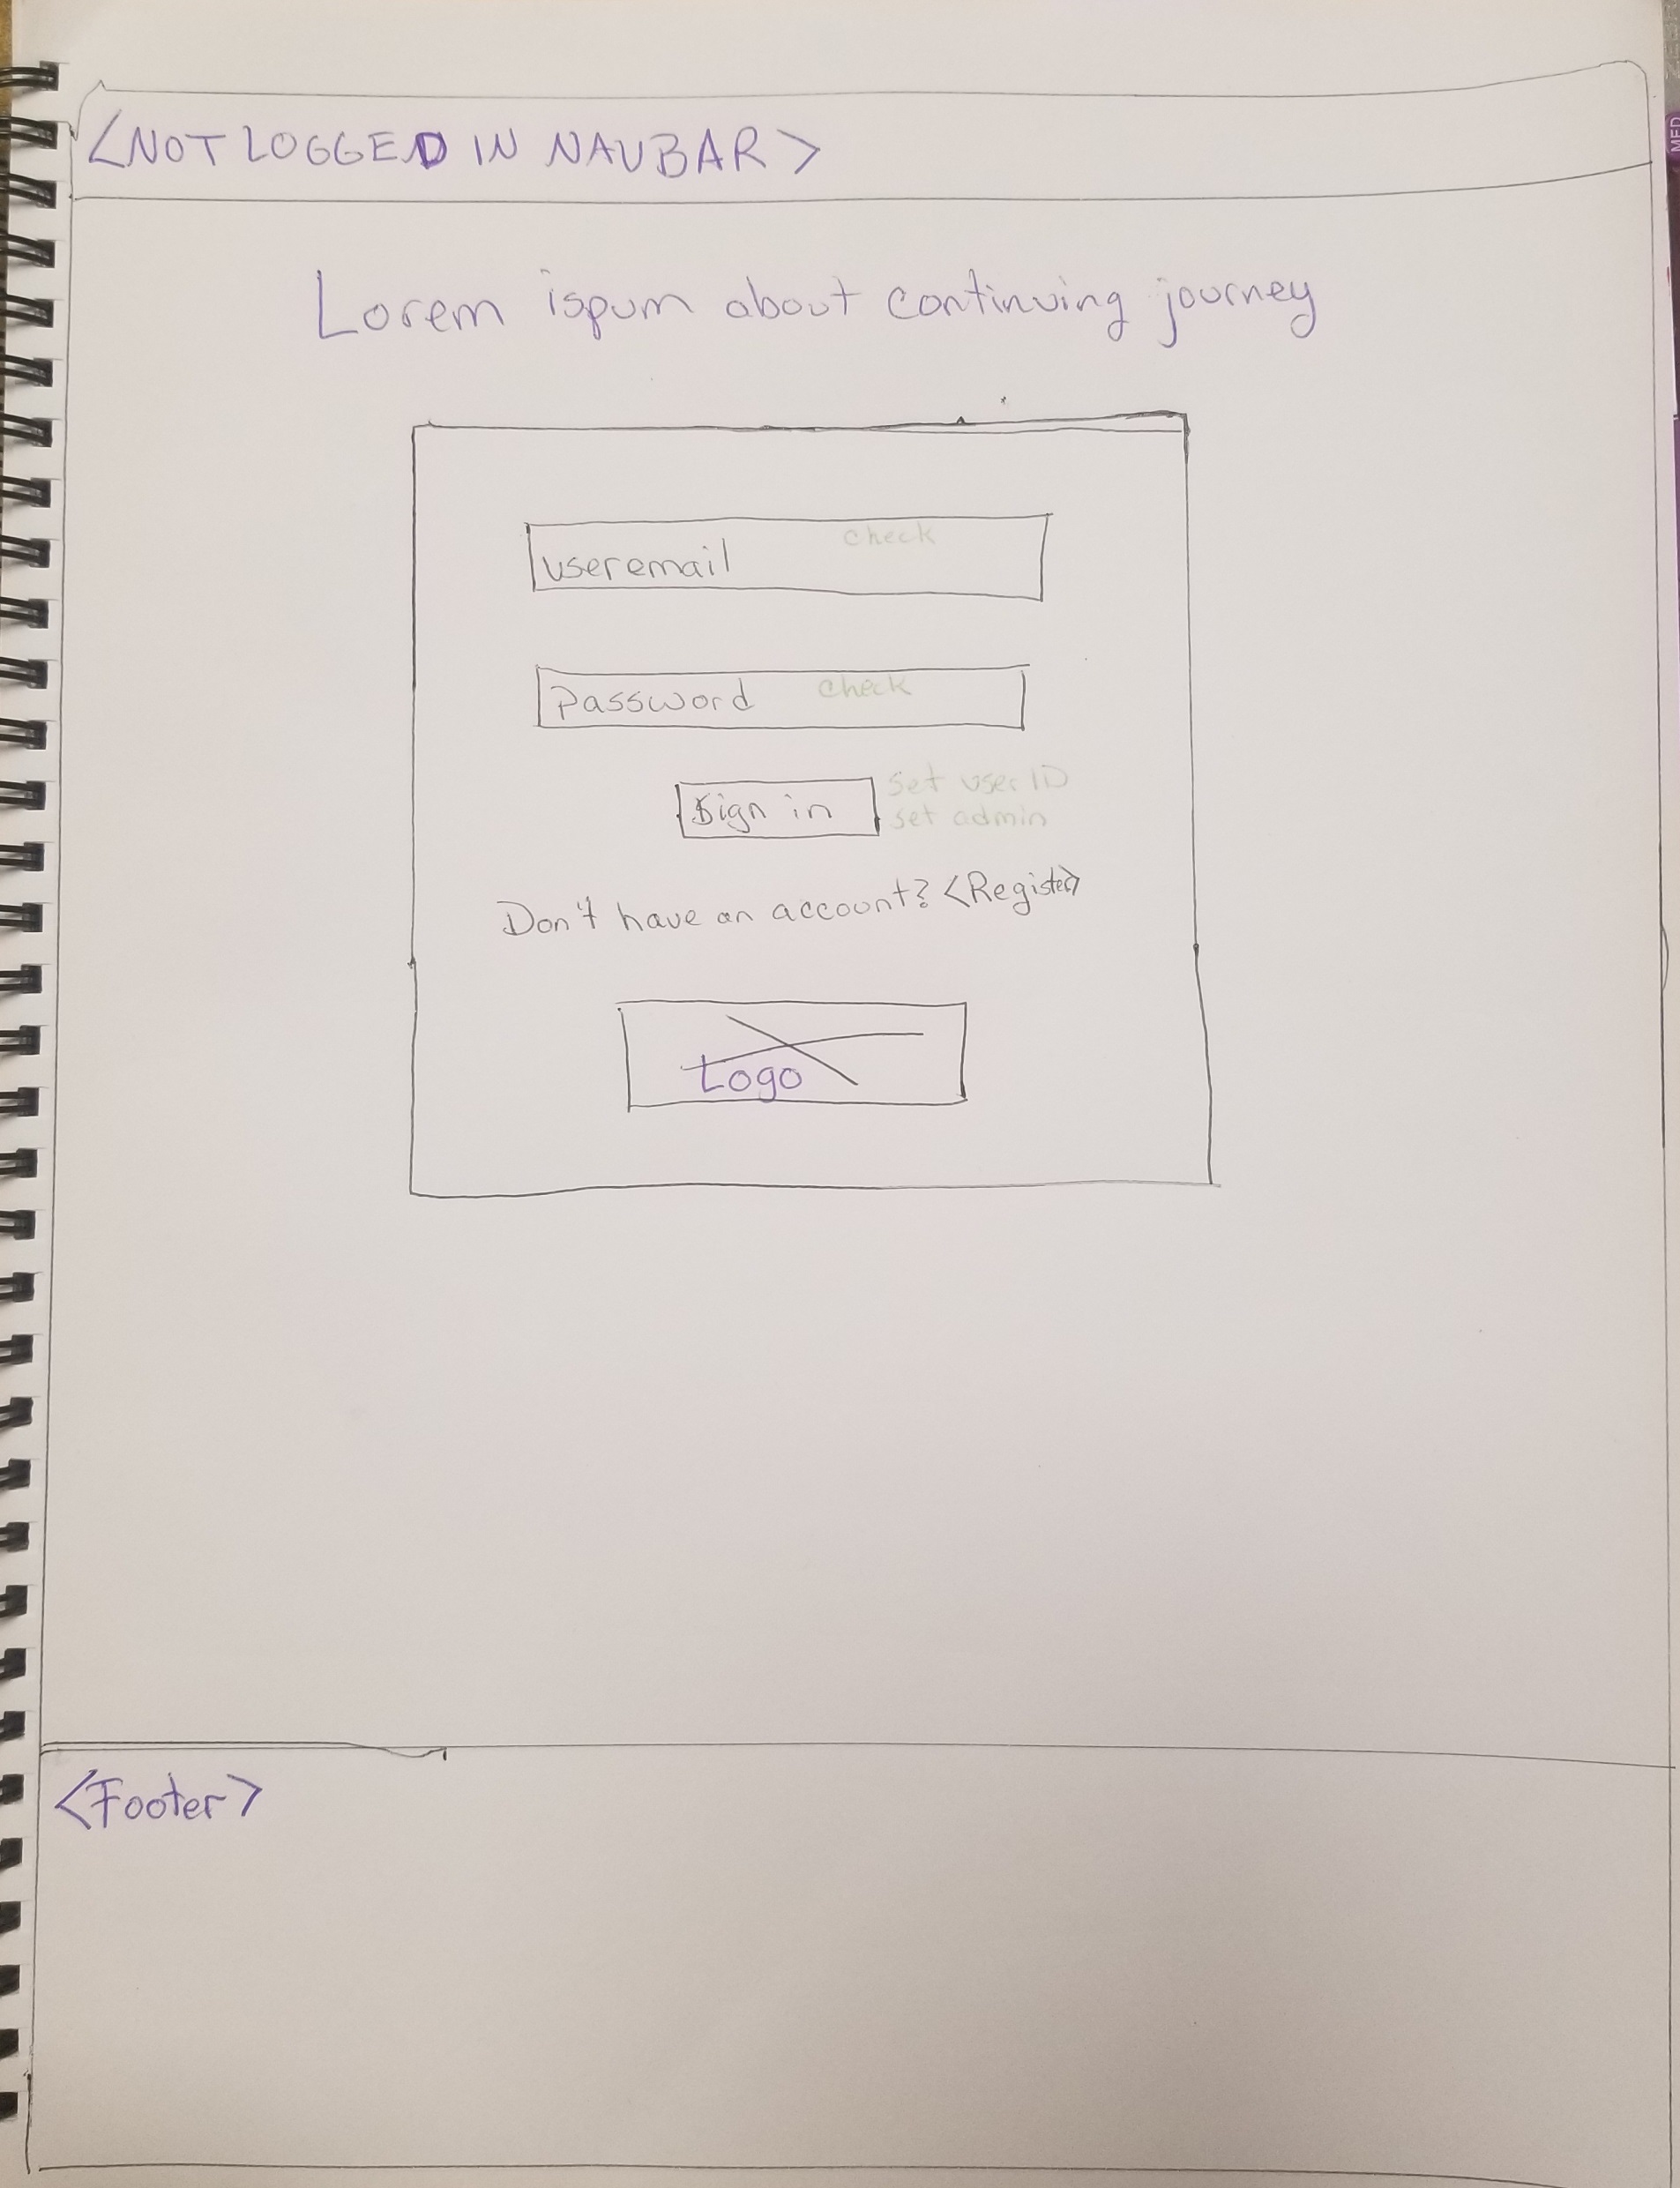 <NOT LOGGED IN NAVBAR>
Lorem ispum about continuing journey
check
useremail
password check
Sign in set user ID
set admin
Don't have an account? <Register>
Logo
<Footer>
MED